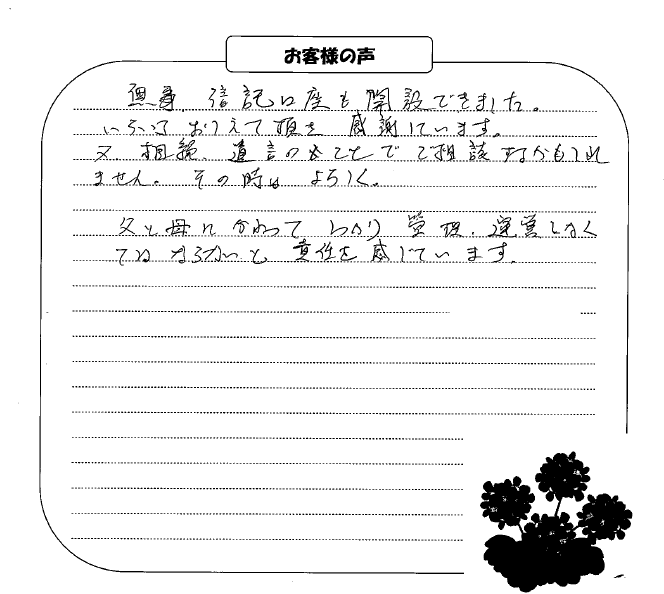 お客様の声
無事、信託口座も開設できました。
いろいろおしえて頂き 感謝しています。
又、相続、遺言の ことで ご相談するかもしれ
ません。その時は よろしく。
父と母に かわって しっかり 管理、運営しなく
ては ならないと 責任を感じています。